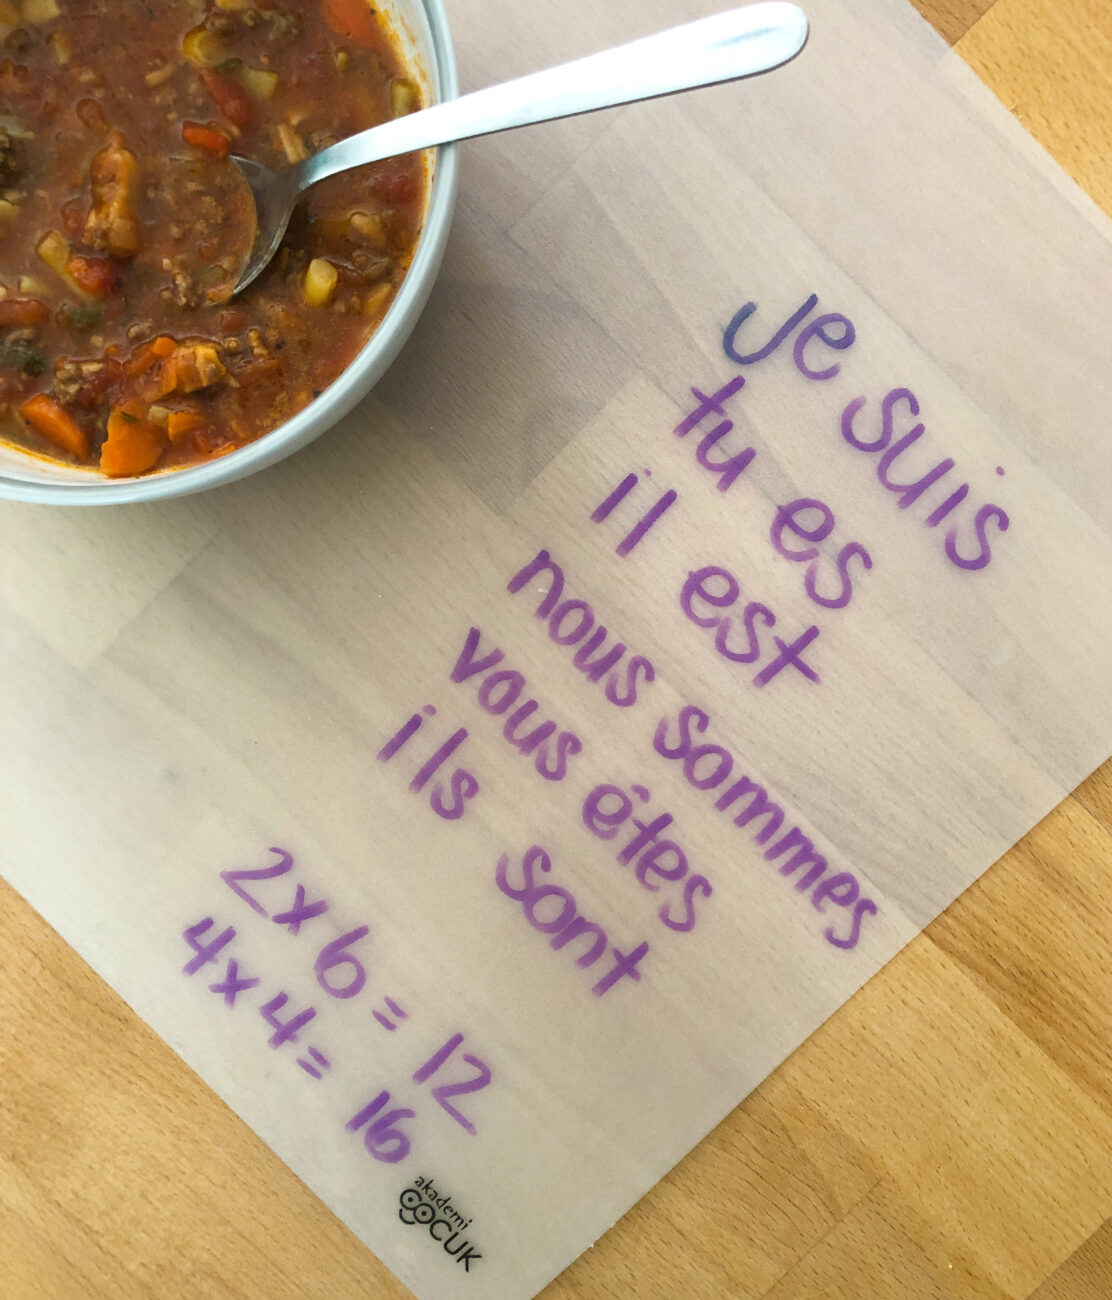 Je suis
tu es
il est
nous sommes
vous êtes
ils sont
2x6=12
4x4=16
akademi
ÇOCUK